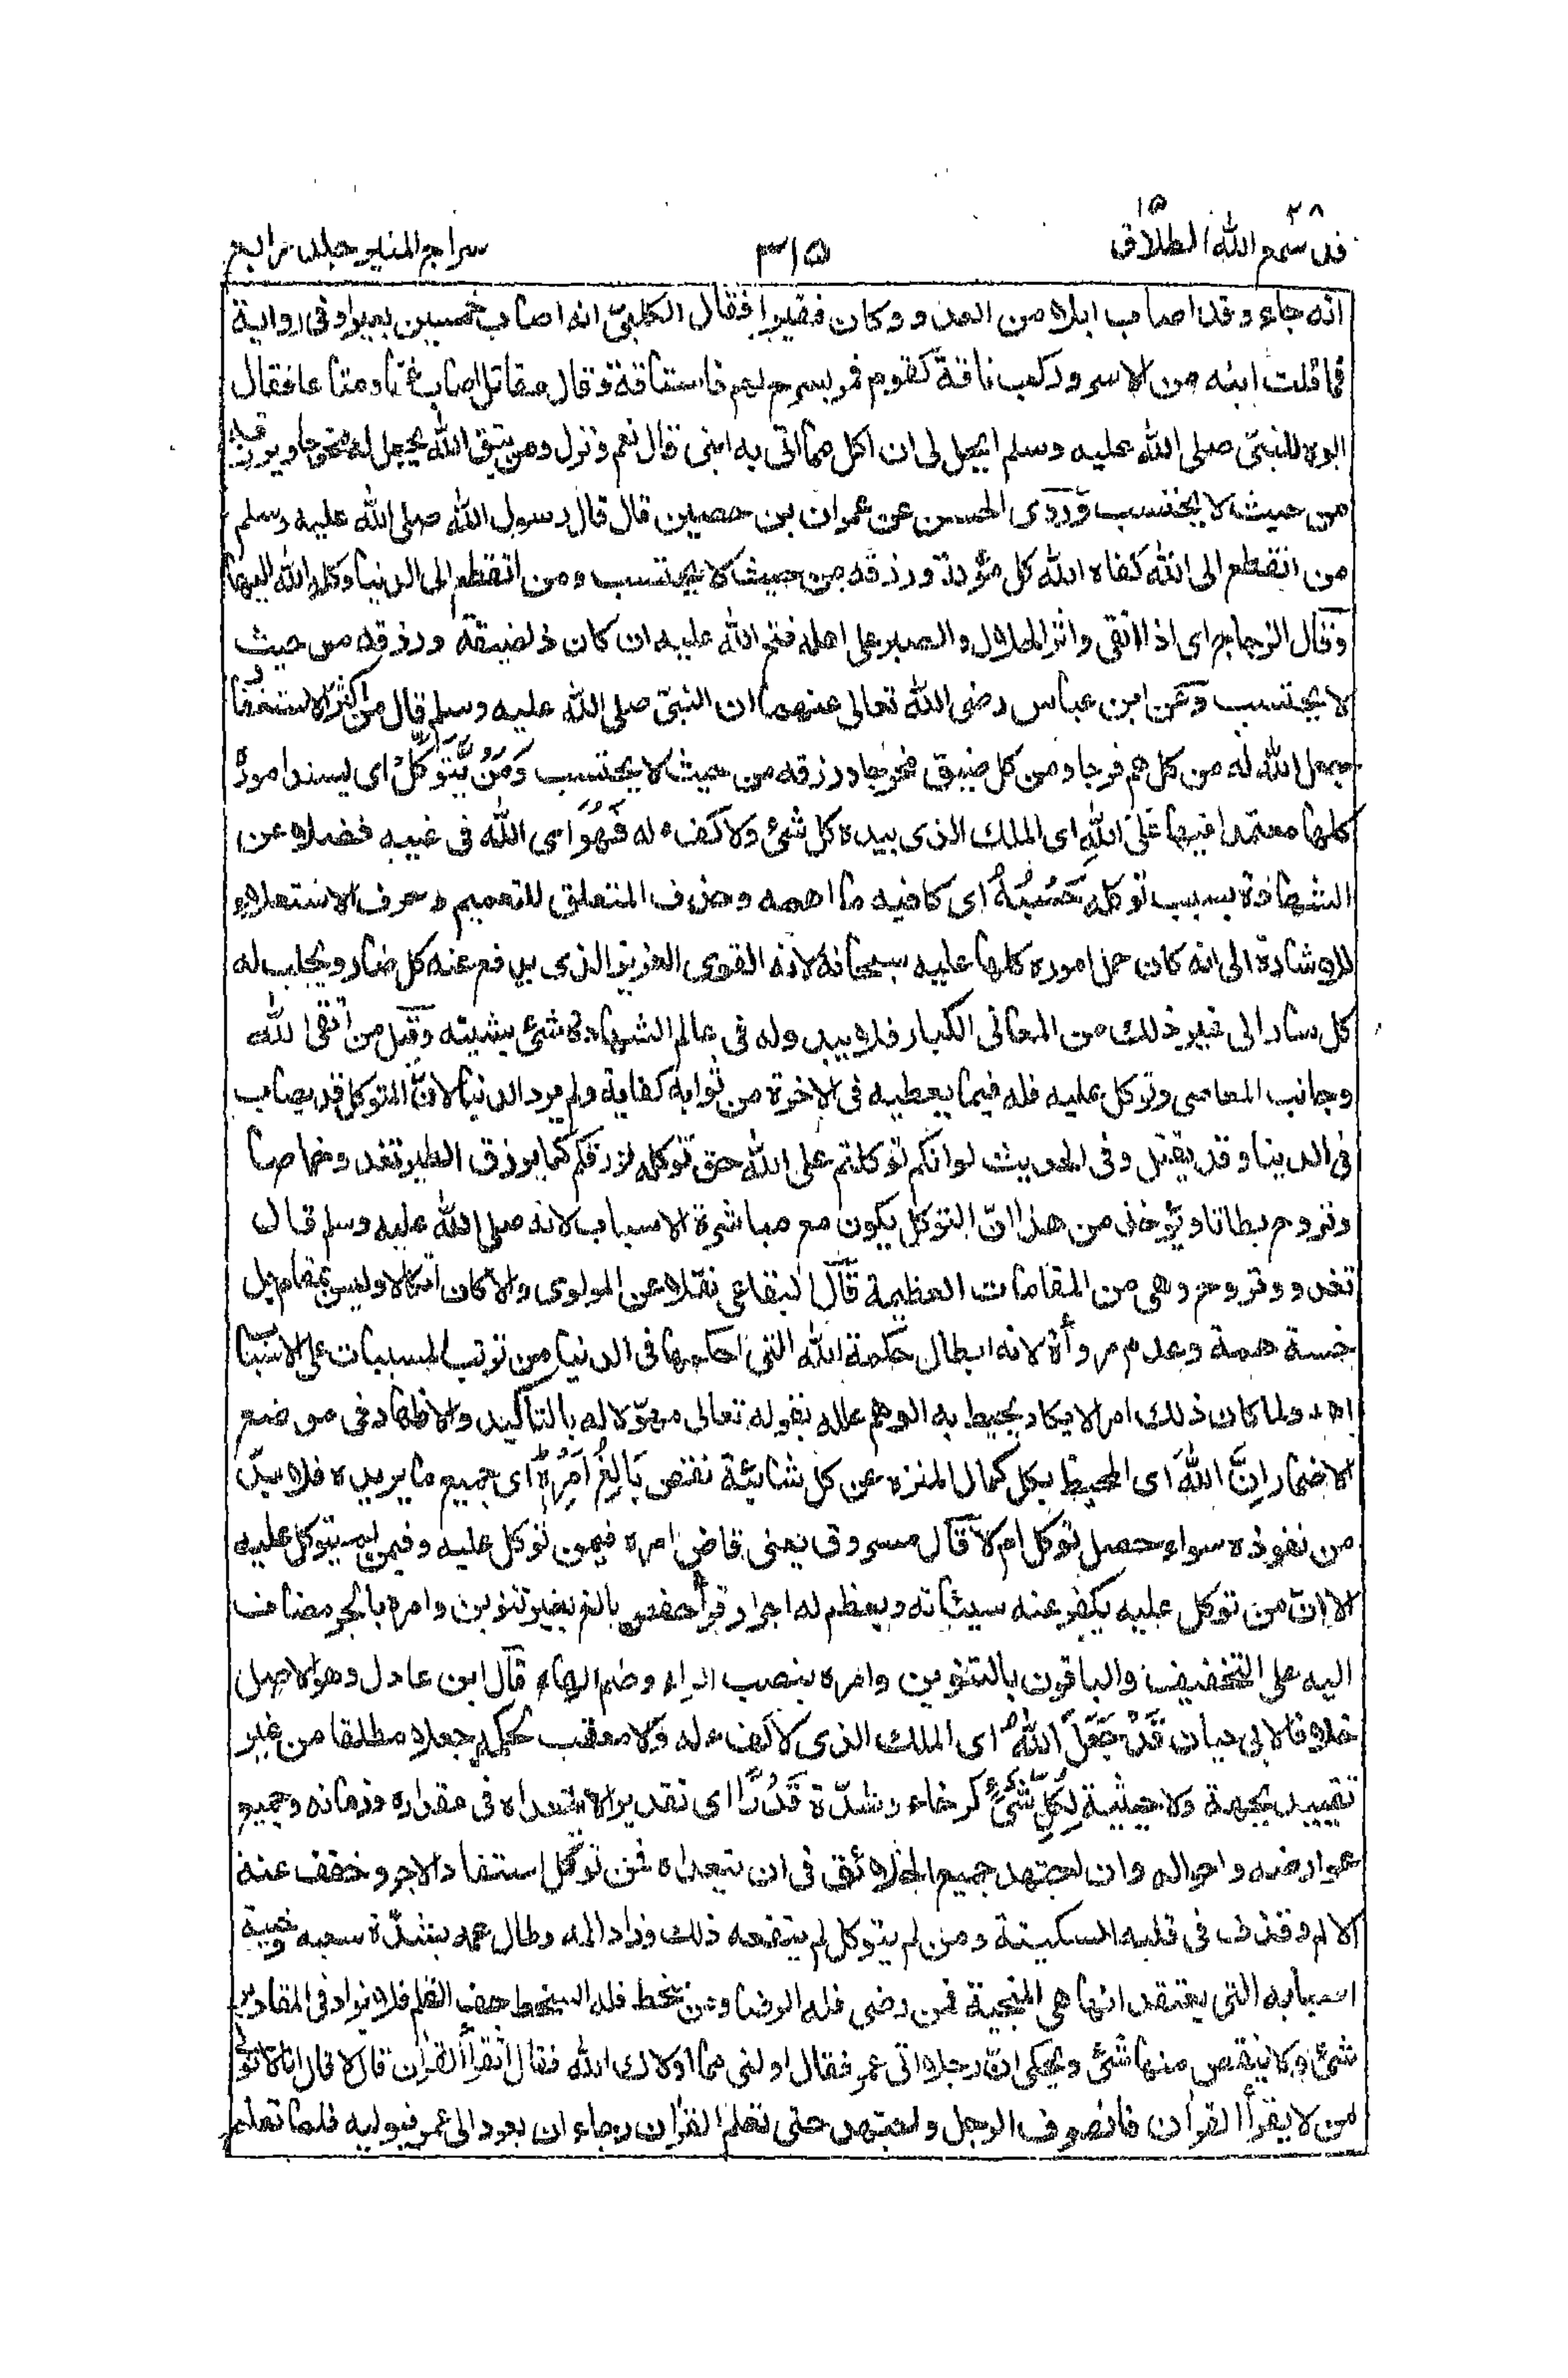 ٢٨ ١٥
قد سمع الله الطلاق ٣١٥ سراج المنير جلد رابع
انه جاء وقد اصاب ابلا من العدو وكان فقيرا فقال الكلبيّ انه اصاب خمسين بعيرا وفى رواية
فافلت ابنه من الاسر وركب ناقة لقوم فمر بسرح لهم فاستاقه وقال مقاتل اصاب غنما ومتاعا فقال
ابوه للنبىّ صلى الله عليه وسلم ايحل لى ان اكل مما اتى به ابنى قال نعم ونزل ومن يتق الله يجعل له مخرجا ويرزقه
من حيث لا يحتسب وروى الحسن عن عمران بن حصين قال قال رسول الله صلى الله عليه وسلم
من انقطع الى الله كفاه الله كل مؤنة ورزقه من حيث لا يحتسب ومن انقطع الى الدنيا وكله الله اليها
وقال الزجاج اى اذا اتقى واثر الحلال والصبر على اهله فتح الله عليه ان كان ذا ضيقة ورزقه من حيث
لا يحتسب وعن ابن عباس رضى الله تعالى عنهما ان النبىّ صلى الله عليه وسلم قال من اكثر الاستغفار
جعل الله له من كل هم فرجا ومن كل ضيق مخرجا ورزقه من حيث لا يحتسب وَمَنْ يَّتَوَكَّلْ اى يسند اموره
كلها معتمدا فيها عَلَى اللهِ اى الملك الذى بيده كل شئ ولا كفء له فَهُوَ اى الله فى غيبه فضلا عن
الشهادة بسبب توكله حَسْبُهٗ اى كافيه ما اهمه وحذف المتعلق للتعميم وحرف الاستعلاء
للاشارة الى انه كان حمل اموره كلها عليه سبحانه لانه القوى العزيز الذى يدفع عنه كل ضار ويجلب له
كل سار الى غير ذلك من المعانى الكبار فلا يبدو له فى عالم الشهادة شئ يشينه وقيل من اتقى الله
وجانب المعاصى وتوكل عليه فله فيما يعطيه فى الاخرة من ثوابه كفاية ولم يرد الدنيا لانّ المتوكل قد يصاب
فى الدينا وقد يقتل وفى الحديث لو انكم توكلتم على الله حق توكله لرزقكم كما يرزق الطير تغدو خماصا
وتروح بطانا ويؤخذ من هذا انّ التوكل يكون مع مباشرة الاسباب لانه صلى الله عليه وسلم قال
تغدو وتروح وهى من المقامات العظيمة قال البقاعى نقلا عن المولوى والا كان اتكالا وليس بمقام بل
خسة همة وعدم مروأة لانه ابطال حكمة الله التى احكمها فى الدنيا من ترتيب المسببات على الاسباب
اهـ ولما كان ذلك امر الا يكاد يحيط به الوهم علله بقوله تعالى مهوّلا له بالتأكيد والاظهار فى موضع
الاضمار اِنَّ اللهَ اى المحيط بكل كمال المنزه عن كل شائبة نقص بَالِغُ اَمْرِهٖ اى جميع ما يريده فلا بدّ
من نفوذه سواء حصل توكل ام لا قال مسروق يعنى قاض امره فيمن توكل عليه وفيمن لم يتوكل عليه
الا انّ من توكل عليه يكفر عنه سيئاته ويعظم له اجرا وقرأ حفص بالغ بغير تنوين وامره بالجر مضاف
اليه على التخفيف والباقون بالتنوين وامره بنصب الراء وضم الهاء قال ابن عادل وهو الاصل
خلافا لابى حيان قَدْ جَعَلَ اللهُ اى الملك الذى لا كفء له ولا معقب لحكمه جعلا مطلقا من غير
تقييد بجهة ولا حيثية لِكُلِّ شَئٍ كرخاء وشدّة قَدْرًا اى تقديرا لا يتعداه فى مقداره وزمانه وجميع
عوارضه واحواله وان اجتهد جميع الخلائق فى ان يتعداه فمن توكل استفاد الاجر وخفف عنه
الالم وقذف فى قلبه السكينة ومن لم يتوكل لم ينفعه ذلك وزاد المه وطال همه بشدّة سعيه وخيبة
اسبابه التى يعتقد انها هى المنجية فمن رضى فله الرضا ومن سخط فله السخط جف القلم فلا يزاد فى المقادير
شئ ولا ينقص منها شئ ويحكى انّ رجلا اتى عمر فقال اولنى مما اولاك الله فقال اتقرأ القرأن قال لا قال انا لا نولى
من لا يقرأ القرأن فانصرف الرجل واجتهد حتى تعلم القرأن رجاء ان يعود الى عمر فيوليه فلما تعلم